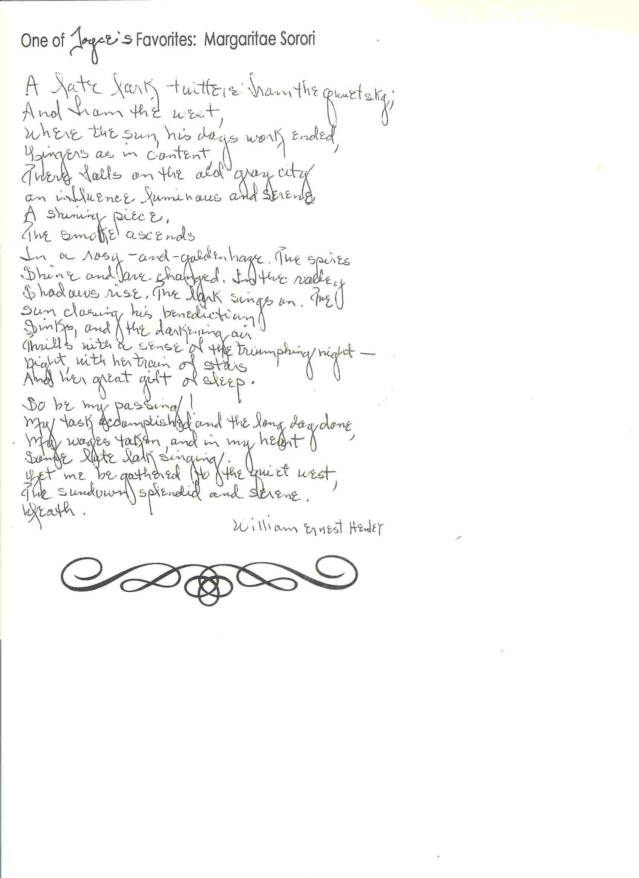 One of Joyce's Favorites: Margaritae Sorori
A late lark twitters from the quiet sky;
And from the west,
Where the sun, his days work ended,
Lingers as in content
There falls on the old gray city
an influence luminous and serene
A shining piece.
The smoke ascends
In a rosy-and-golden haze. The spires
Shine and are changed. In the valley
Shadows rise. The lark sings on. The
sun closing his benediction
Sinks, and the darkening air
Thrills with a sense of the triumphing night—
Night with her train of stars
And her great gift of sleep.
So be my passing!
My task accomplished and the long day done,
My wages taken, and in my heart
Some late lark singing.
Let me be gathered to the quiet west,
The sundown splendid and serene.
Death.
William Ernest Henley